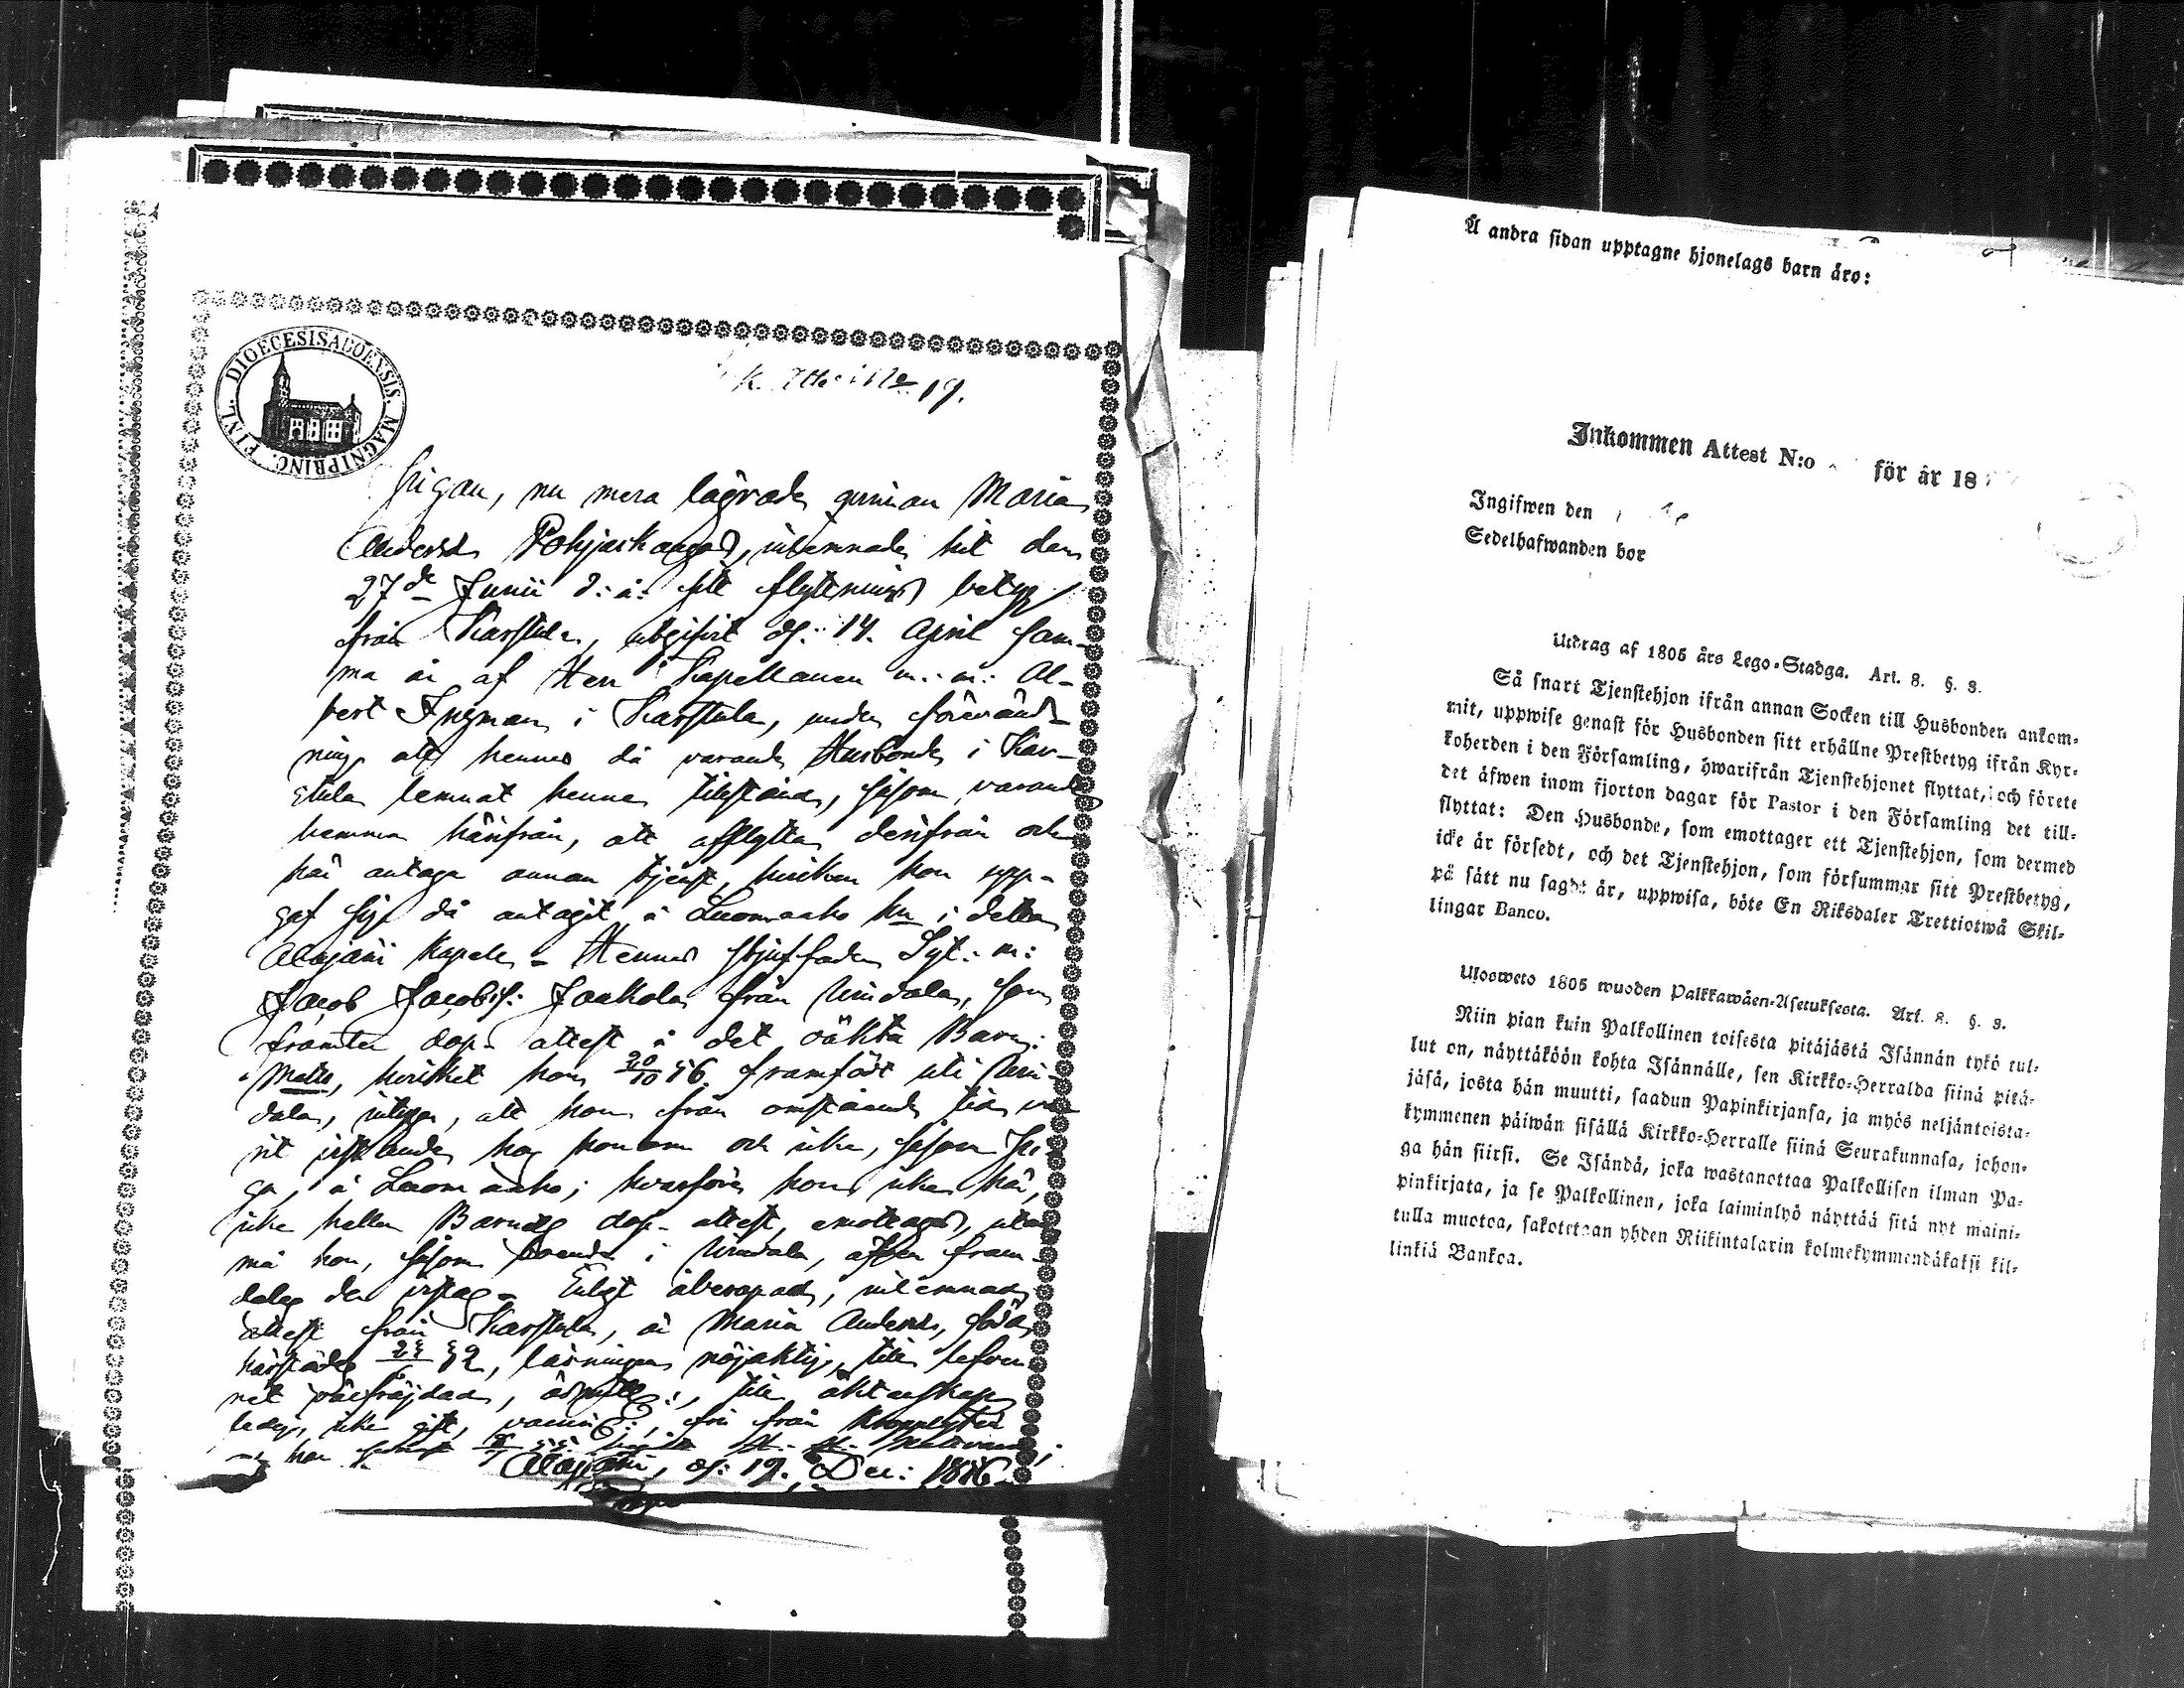 DIOECESIS ABOENSIS. MAGNI PRINC. FINL.
19.
Pigan, nu mera lägrade qvinnan Maria
Andersd. Pohjaskangas, inlemnade hit den
27de Junii d: å: sitt flyttnings betyg
från Karstula, utgifvit d. 14. April sam-
ma år af Herr Kapellanen m: m: Al-
bert Ingman i Karstula, under förevänd-
ning att hennes då varande Husbonde i Kar-
stula lemnat henne tillstånd, såsom varande
hemma härifrån, att afflytta derifrån och
här antaga annan tjenst, hvilken hon upp-
gaf sig då antagit å Luomaaho hn i detta
Alajärvi Kapell - Hennes stjuffader Syt: m:
Jacob Jacobss: Jaakola från Vindala, som
framter dop attest å det oäkta Barn:
Matts, hvilket hon 20/10 56 framfödt uti Vin-
dala, intygar, att hon från omstående tid va-
rit vistande hos honom och icke, såsom Pi-
ga, å Luomaaho; hvarföre hon icke här,
icke heller Barnets dop- attest, emottages, utan
må hon, såsom boende i Vindala, äfven fram-
deles der vistas - Enligt åberopade, inlemnade
attest från Karstula, är Maria Andersd., född
härstädes 32, läsningen nöjaktig, till lefver-
net väl fräjdad, till äktenskap
ledig, icke gift, vaccin:, fri från
har
Alajärvi, d: 19. Dec: 1856
Å andra sidan upptagne hjonelags barn äro:
Inkommen Attest N:o för år 18
Ingifwen den
Sedelhafwanden bor
Utdrag af 1805 års Lego-Stadga. Art. 8. §. 3.
Så snart Tjenstehjon ifrån annan Socken till Husbonden ankom-
mit, uppwise genast för Husbonden sitt erhållne Prestbetyg ifrån Kyr-
koherden i den Församling, hwarifrån Tjenstehjonet flyttat, och förete
det äfwen inom fjorton dagar för Pastor i den Församling det till-
flyttat: Den Husbonde, som emottager ett Tjenstehjon, som dermed
icke är försedt, och det Tjenstehjon, som försummar sitt Prestbetyg,
på sätt nu sagdt är, uppwisa, böte En Riksdaler Trettiotwå Skil-
lingar Banco.
Ulosweto 1805 wuoden Palkkawäen-Asetuksesta. Art. 8. §. 3.
Niin pian kuin Palkollinen toisesta pitäjästä Isännän tykö tul-
lut on, näyttäköön kohta Isännälle, sen Kirkko-Herralda siinä pitä-
jäsä, josta hän muutti, saadun Papinkirjansa, ja myös neljäntoista-
kymmenen päiwän sisällä Kirkko-Herralle siinä Seurakunnasa, johon-
ga hän siirsi. Se Isändä, joka wastanottaa Palkollisen ilman Pa-
pinkirjata, ja se Palkollinen, joka laiminlyö näyttää sitä nyt maini-
tulla muotoa, sakotetaan yhden Riikintalarin kolmekymmendäkaksi kil-
linkiä Bankoa.